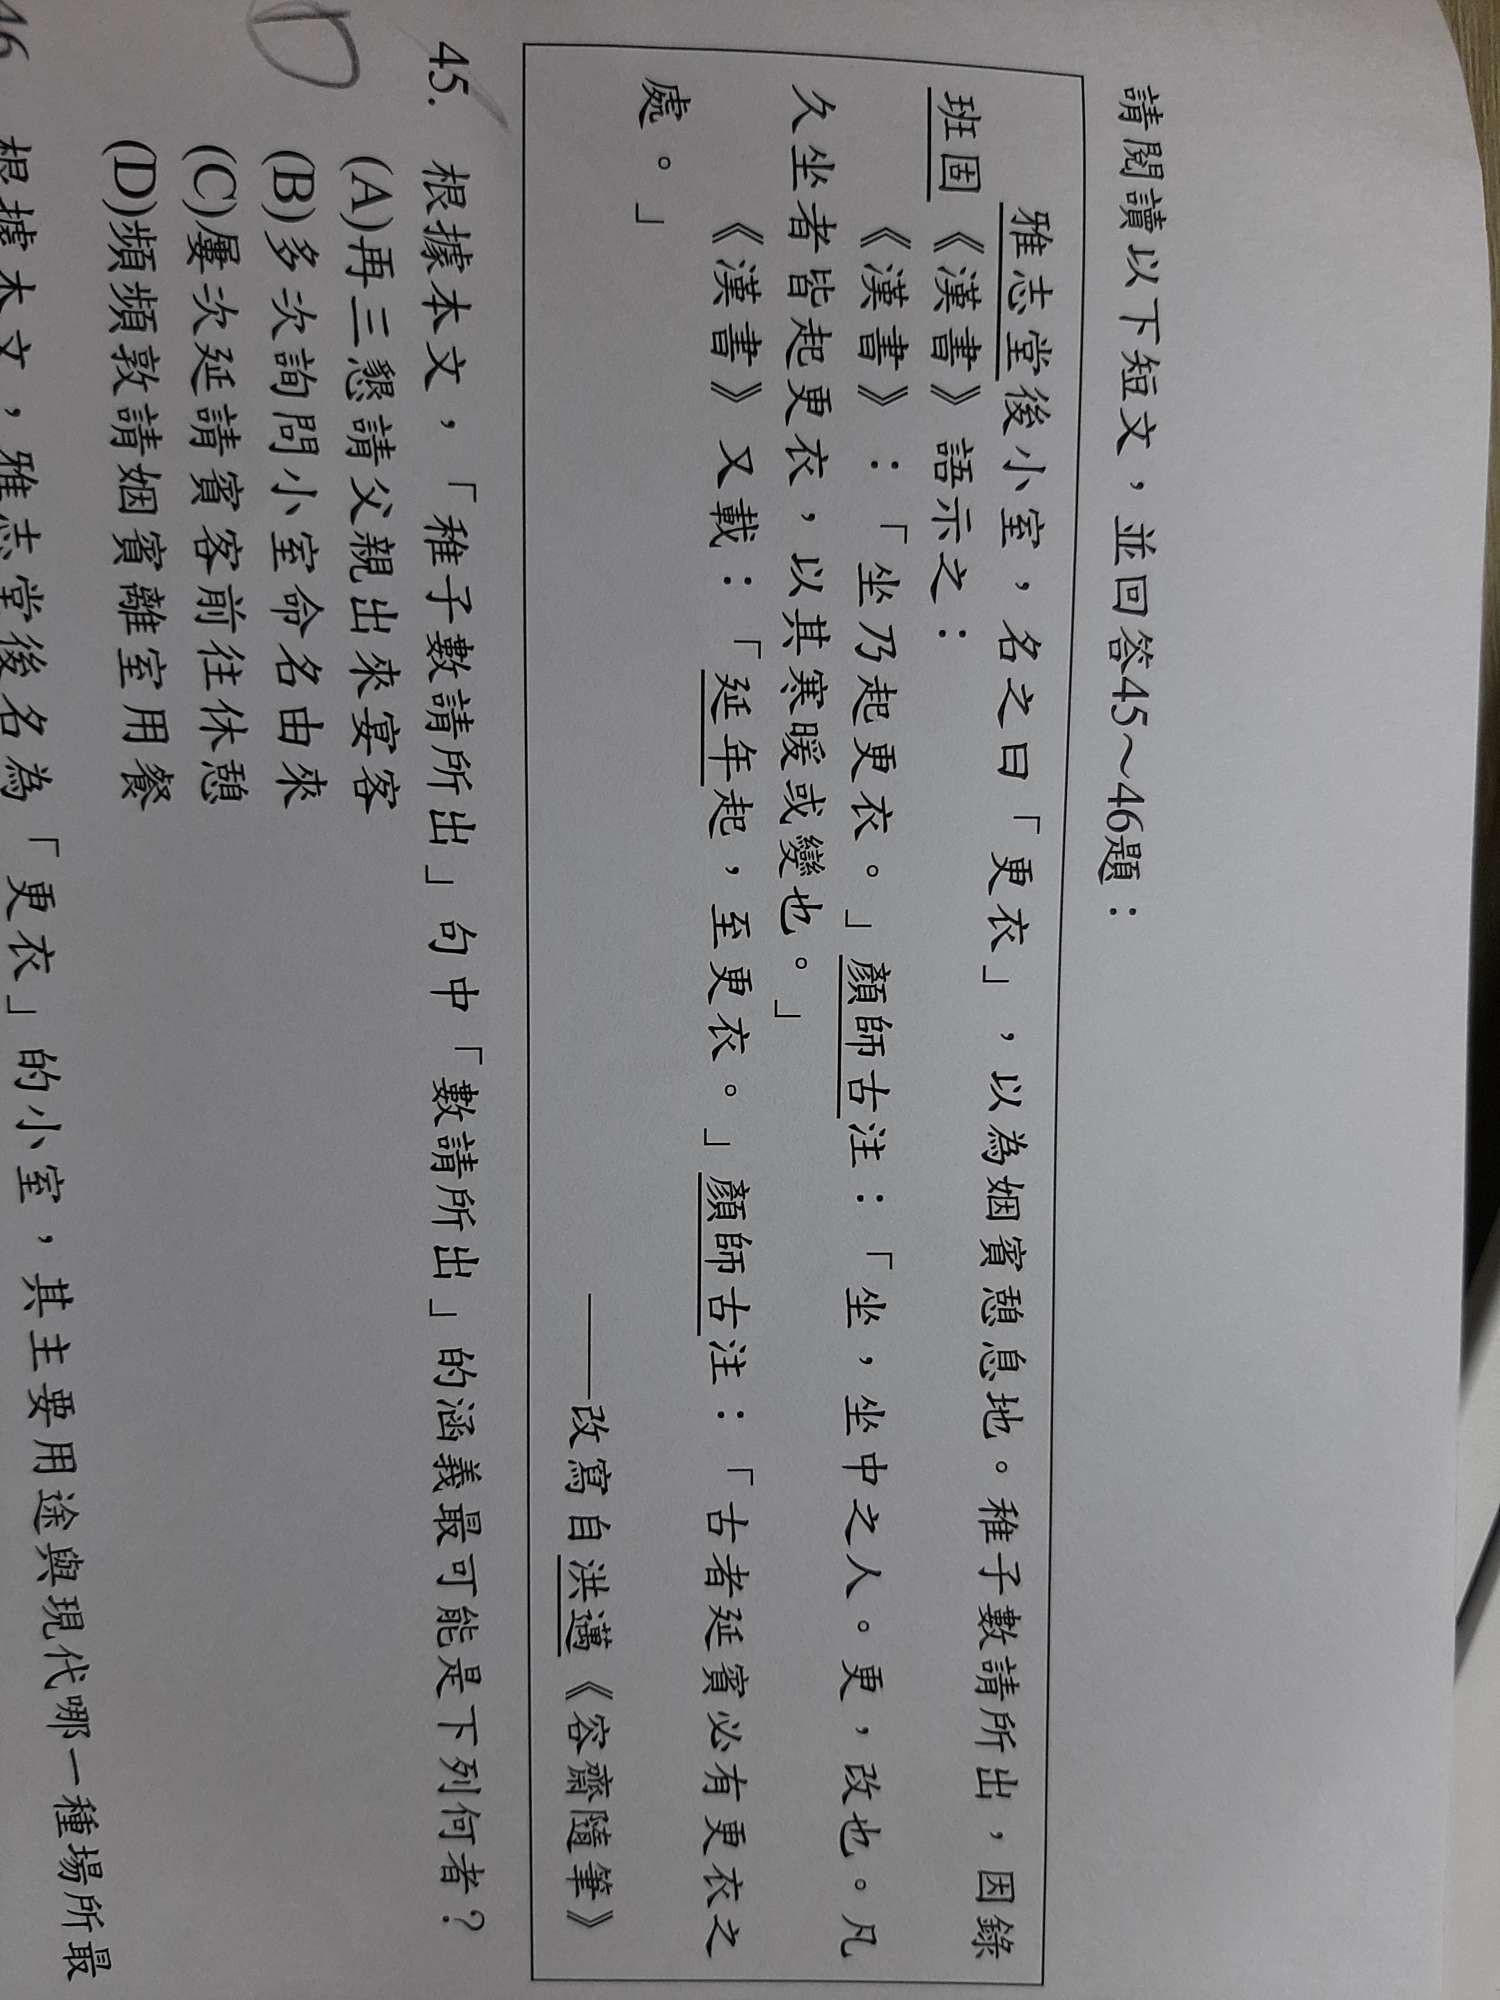 請閱讀以下短文，並回答45～46題：
雅志堂後小室，名之曰「更衣」，以為姻賓憩息地。稚子數請所出，因錄
班固《漢書》語示之：
《漢書》：「坐乃起更衣。」顏師古注：「坐，坐中之人。更，改也。凡
久坐者皆起更衣，以其寒暖或變也。」
《漢書》又載：「延年起，至更衣。」顏師古注：「古者延賓必有更衣之
處。」
——改寫自洪邁《容齋隨筆》
45. 根據本文，「稚子數請所出」句中「數請所出」的涵義最可能是下列何者？
(A)再三懇請父親出來宴客
(B)多次詢問小室命名由來
(C)屢次延請賓客前往休憩
(D)頻頻敦請姻賓離室用餐
46 根據本文，雅志堂後名為「更衣」的小室，其主要用途與現代哪一種場所最